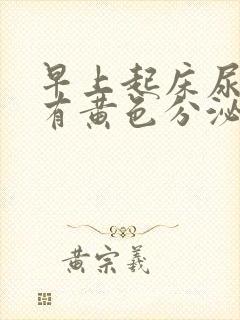 早上起床尿
有黄色分泌
黄宗羲